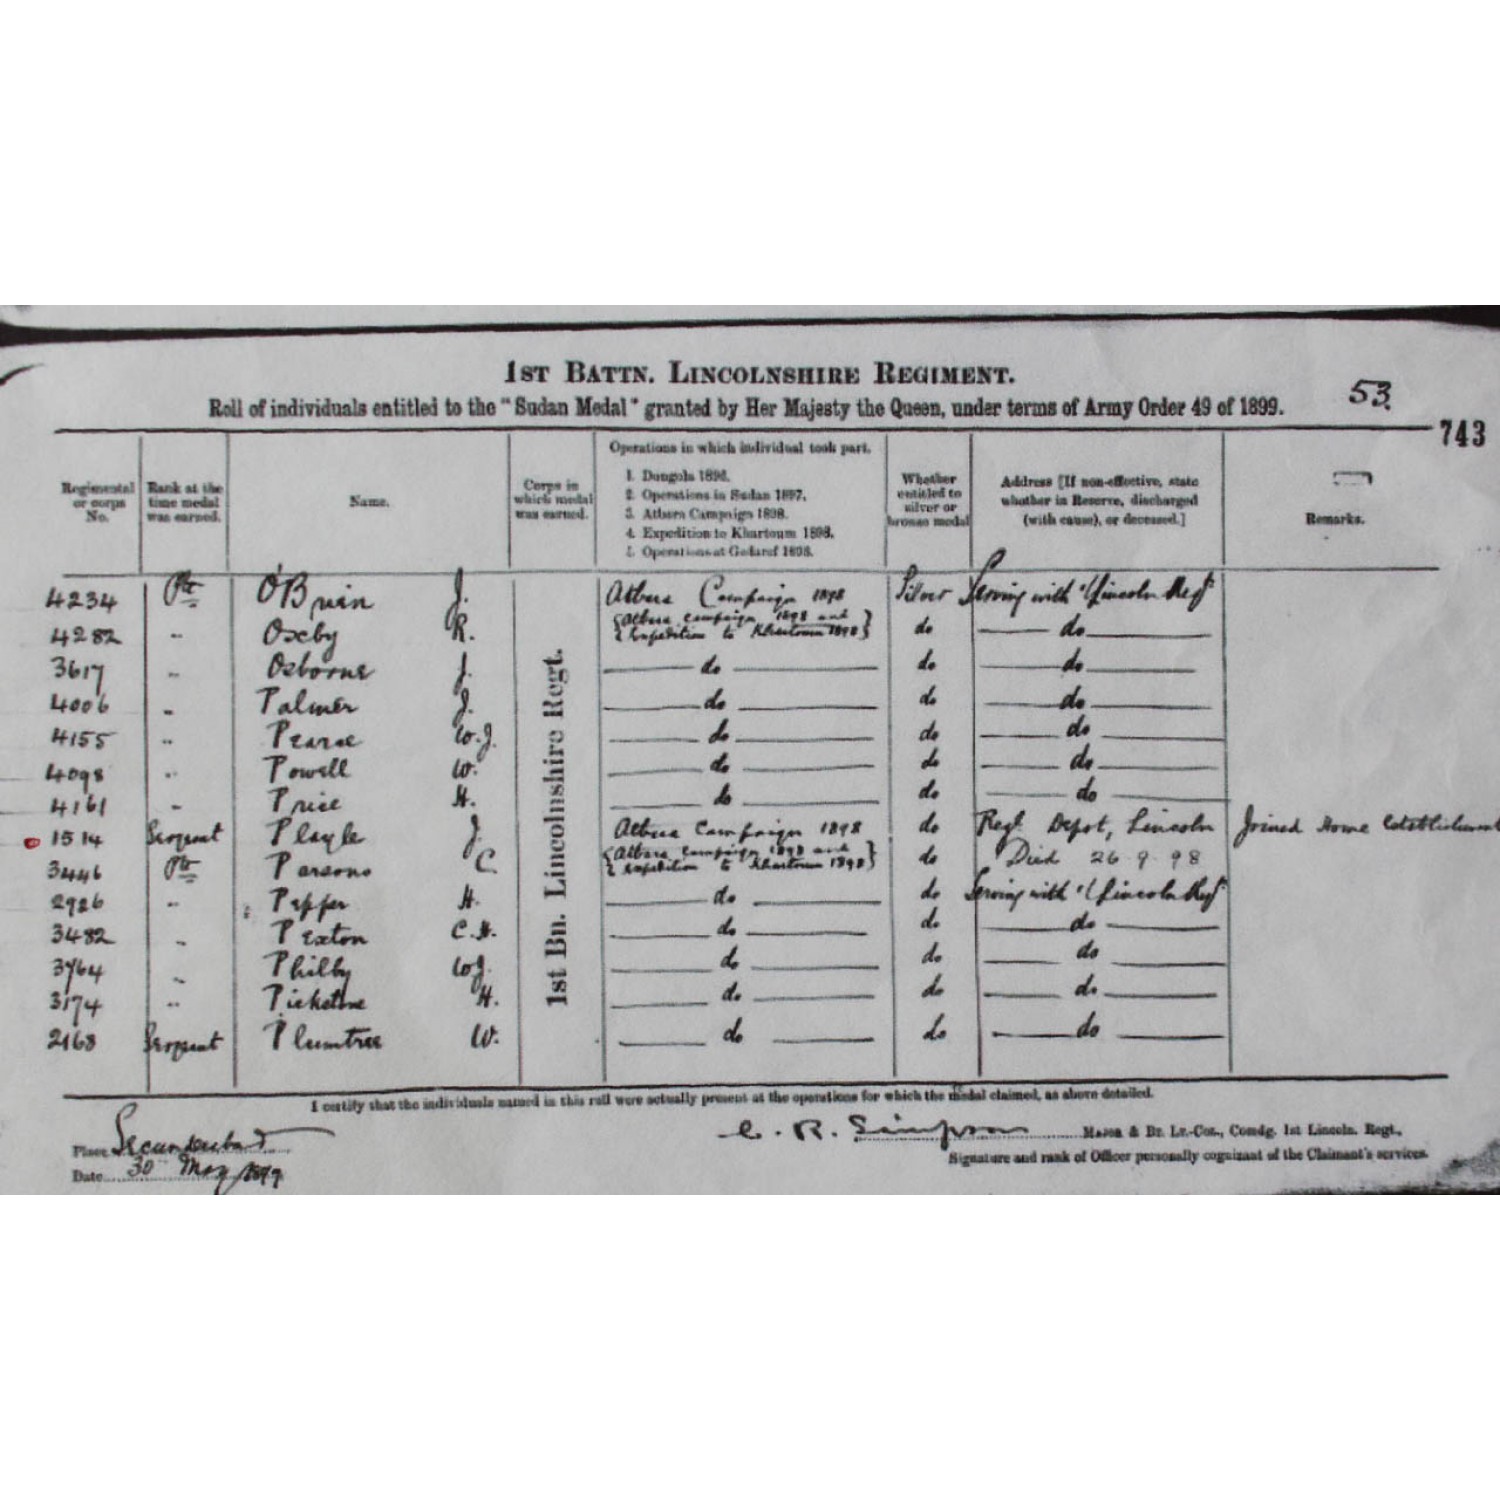 1ST BATTN. LINCOLNSHIRE REGIMENT.
Roll of individuals entitled to the "Sudan Medal" granted by Her Majesty the Queen, under terms of Army Order 49 of 1899.
53.
743
Regimental or corps No.
Rank at the time medal was earned.
Name.
Corps in which medal was earned.
Operations in which individual took part.
1. Dongola 1896.
2. Operations in Sudan 1897.
3. Atbara Campaign 1898.
4. Expedition to Khartoum 1898.
5. Operations at Gedaref 1898.
Whether entitled to silver or bronze medal
Address [If non-effective, state whether in Reserve, discharged (with cause), or deceased.]
Remarks.
1st Bn. Lincolnshire Regt.
4234 Pte O'Brien J. Atbara Campaign 1898 Silver Serving with 1/Lincoln Regt
4282 " Oxeby R. {Atbara campaign 1898 and Expedition to Khartoum 1898} do do
3617 " Osborne J. do do do
4006 " Palmer J. do do do
4155 " Pearse W.J. do do do
4098 " Powell W. do do do
4161 " Price H. do do do
1514 Sergeant Playle J. Atbara Campaign 1898 do Regl Depot, Lincoln Joined Home Establishment
3446 Pte Parsons C. {Atbara Campaign 1898 and Expedition to Khartoum 1898} do Died 26-9-98
2926 " Pepper H. do do Serving with 1/Lincoln Regt
3482 " Pexton C.H. do do do
3764 " Philby W.J. do do do
3174 " Pickstone H. do do do
2168 Sergeant Plumtree W. do do do
I certify that the individuals named in this roll were actually present at the operations for which the medal claimed, as above detailed.
Place Secunderabad
Date 30th May 1899
C. R. Simpson MAJOR & BT. LT.-COL., Comdg. 1st Lincoln. Regt.,
Signature and rank of Officer personally cognizant of the Claimant's services.